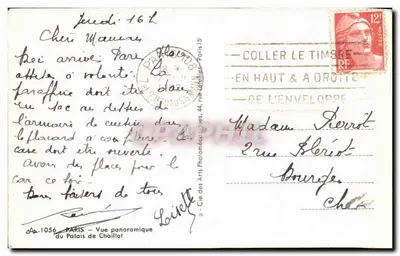 Jeudi 16h
Chère Maman
Bien arrivé Paris
allées à volonté. La
paraffine doit être dans
un sac au dessus de
l'armoire de cuisine dans
le placard à
case doit être ouverte
Avons des places pour le
car ce soir.
Bons baisers de tous
René
Lisette
1056 PARIS - Vue panoramique
du Palais de Chaillot
Cie des Arts Photomécaniques, 44, rue Paris 15
COLLER LE TIMBRE
EN HAUT & A DROITE
DE L'ENVELOPPE
12F
RF
Madame Pierrot
2 rue Blériot
Bourges
Cher